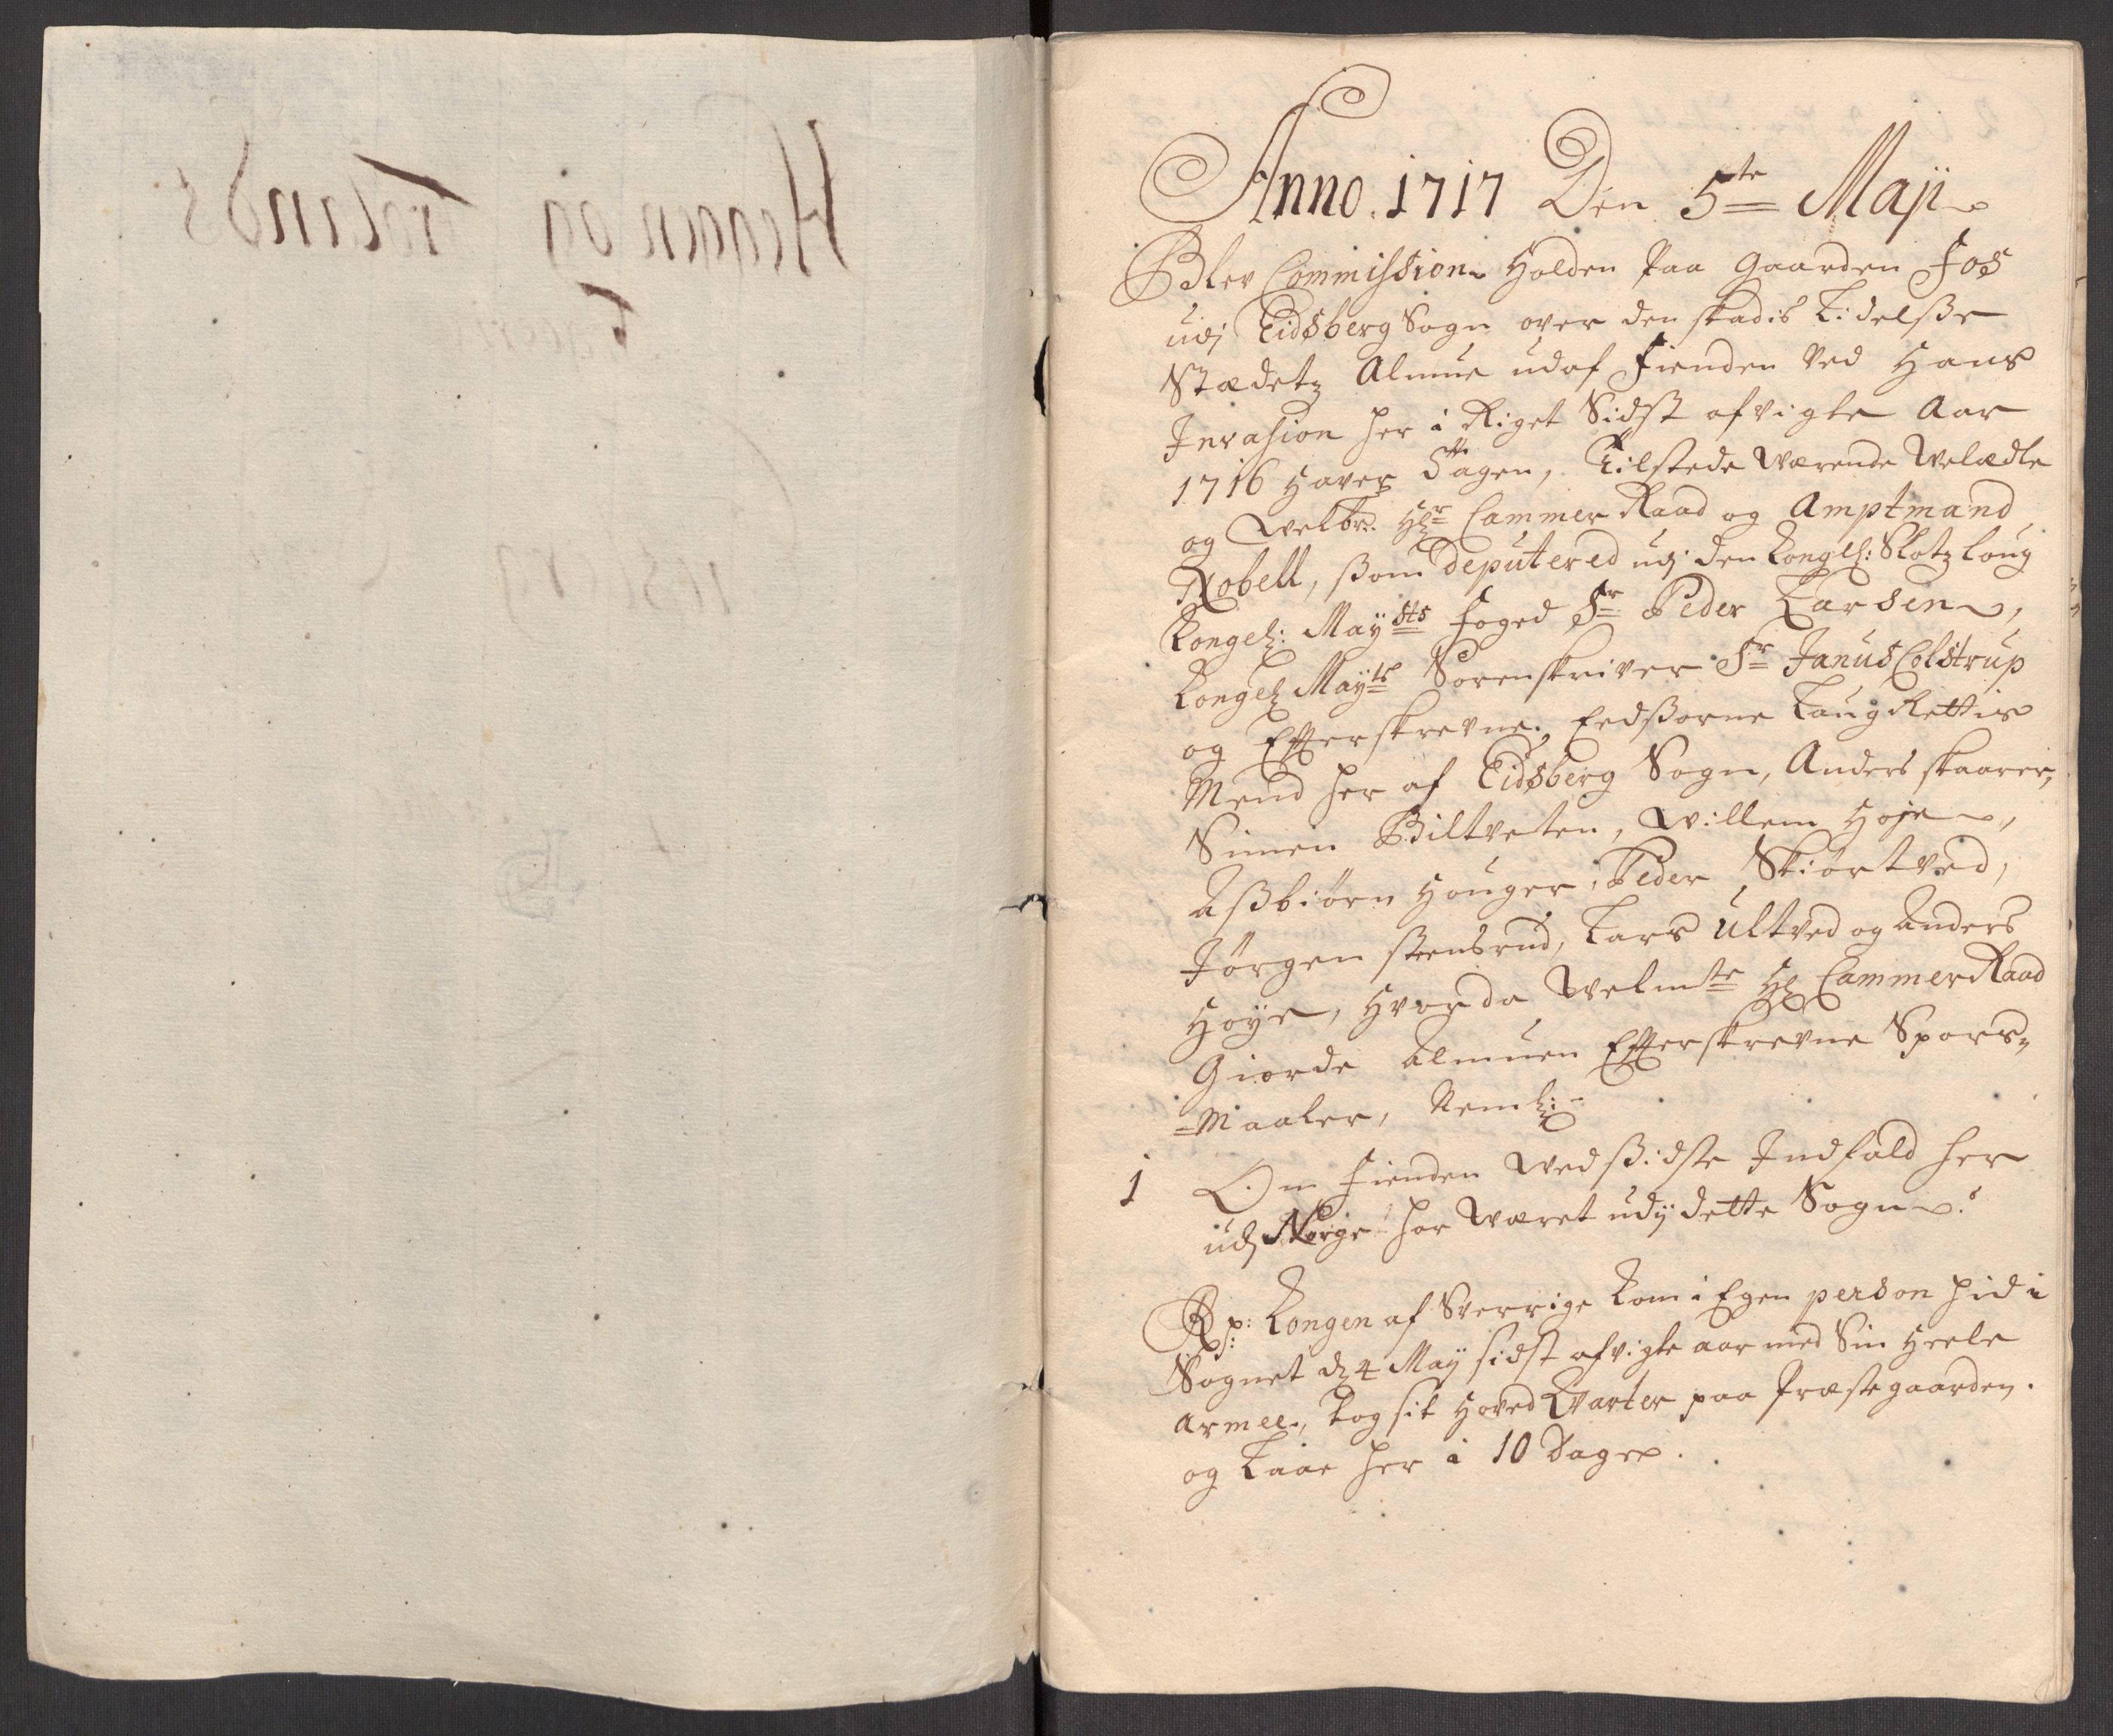 Heggen og Frølands
Anno. 1717 Den 5te Maji
Blev Commission Holden Paa Gaarden Fos
udj Eidsberg Sogn over den skadis Lidelsse
Stædetz Almue udaf Fienden Ved Hans
Invasion her i Riget Sidst afvigte Aar
1716 Haver Tagen, Tilstede Wærende Welædle
og Welbr. Hr. Cammer Raad og Amptmand
Robell, ssom deputered udj den Kongel: Slotz Loug
Kongel: Maysts Foged Sr Peder Larsen,
Kongel Mayts Sorenskriver Sr Janus Colstrup
og Efterskrevne Eedssorne Laug Rettis
Mend her af Eidsberg Sogn, Anders skaarer,
Simen Biltveten, Willem Høje,
Assbiørn Houger, Peder Skiørtved,
Jørgen stensrud, Lars Ultved og Anders
Høye, Hvorda Welmte Hr Cammer Raad
Giorde Almuen Efterskrevne Spørs-
-Maaler, Neml:
1 Om Fienden Wed ssidste Indfald her
udj Norge har Wæret udij dette Sogn?
Rp: Kongen af Sverrige Kom i Egen person hid i
Sognet d 4 Maij sidst afvigte aar med Sin Heele
Armee, tog sit Hoved Qvarter paa Præstegaarden
og Laae her i 10 Dage.